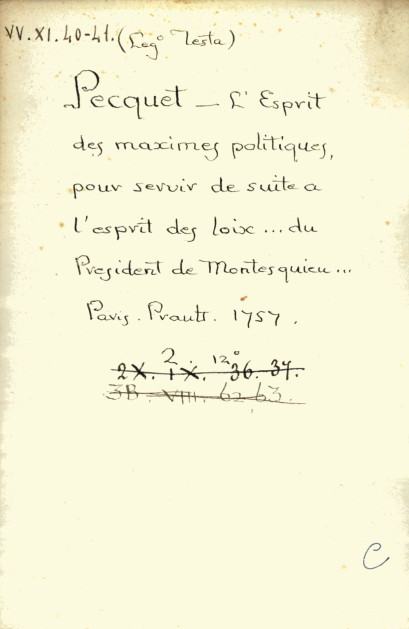 VV.XI.40-41. (Leg° Testa)
Pecquet — L'Esprit
des maximes politiques,
pour servir de suite a
l'esprit des loix ... du
President de Montesquieu ...
Paris. Prault. 1757.
2. 12°
2X. IX. 36. 37.
3B. VIII. 62-63.
C